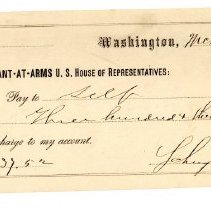 Washington,
ANT-AT-ARMS U. S. HOUSE OF REPRESENTATIVES:
Pay to Self
Three hundred &
charge to my account.
37.52